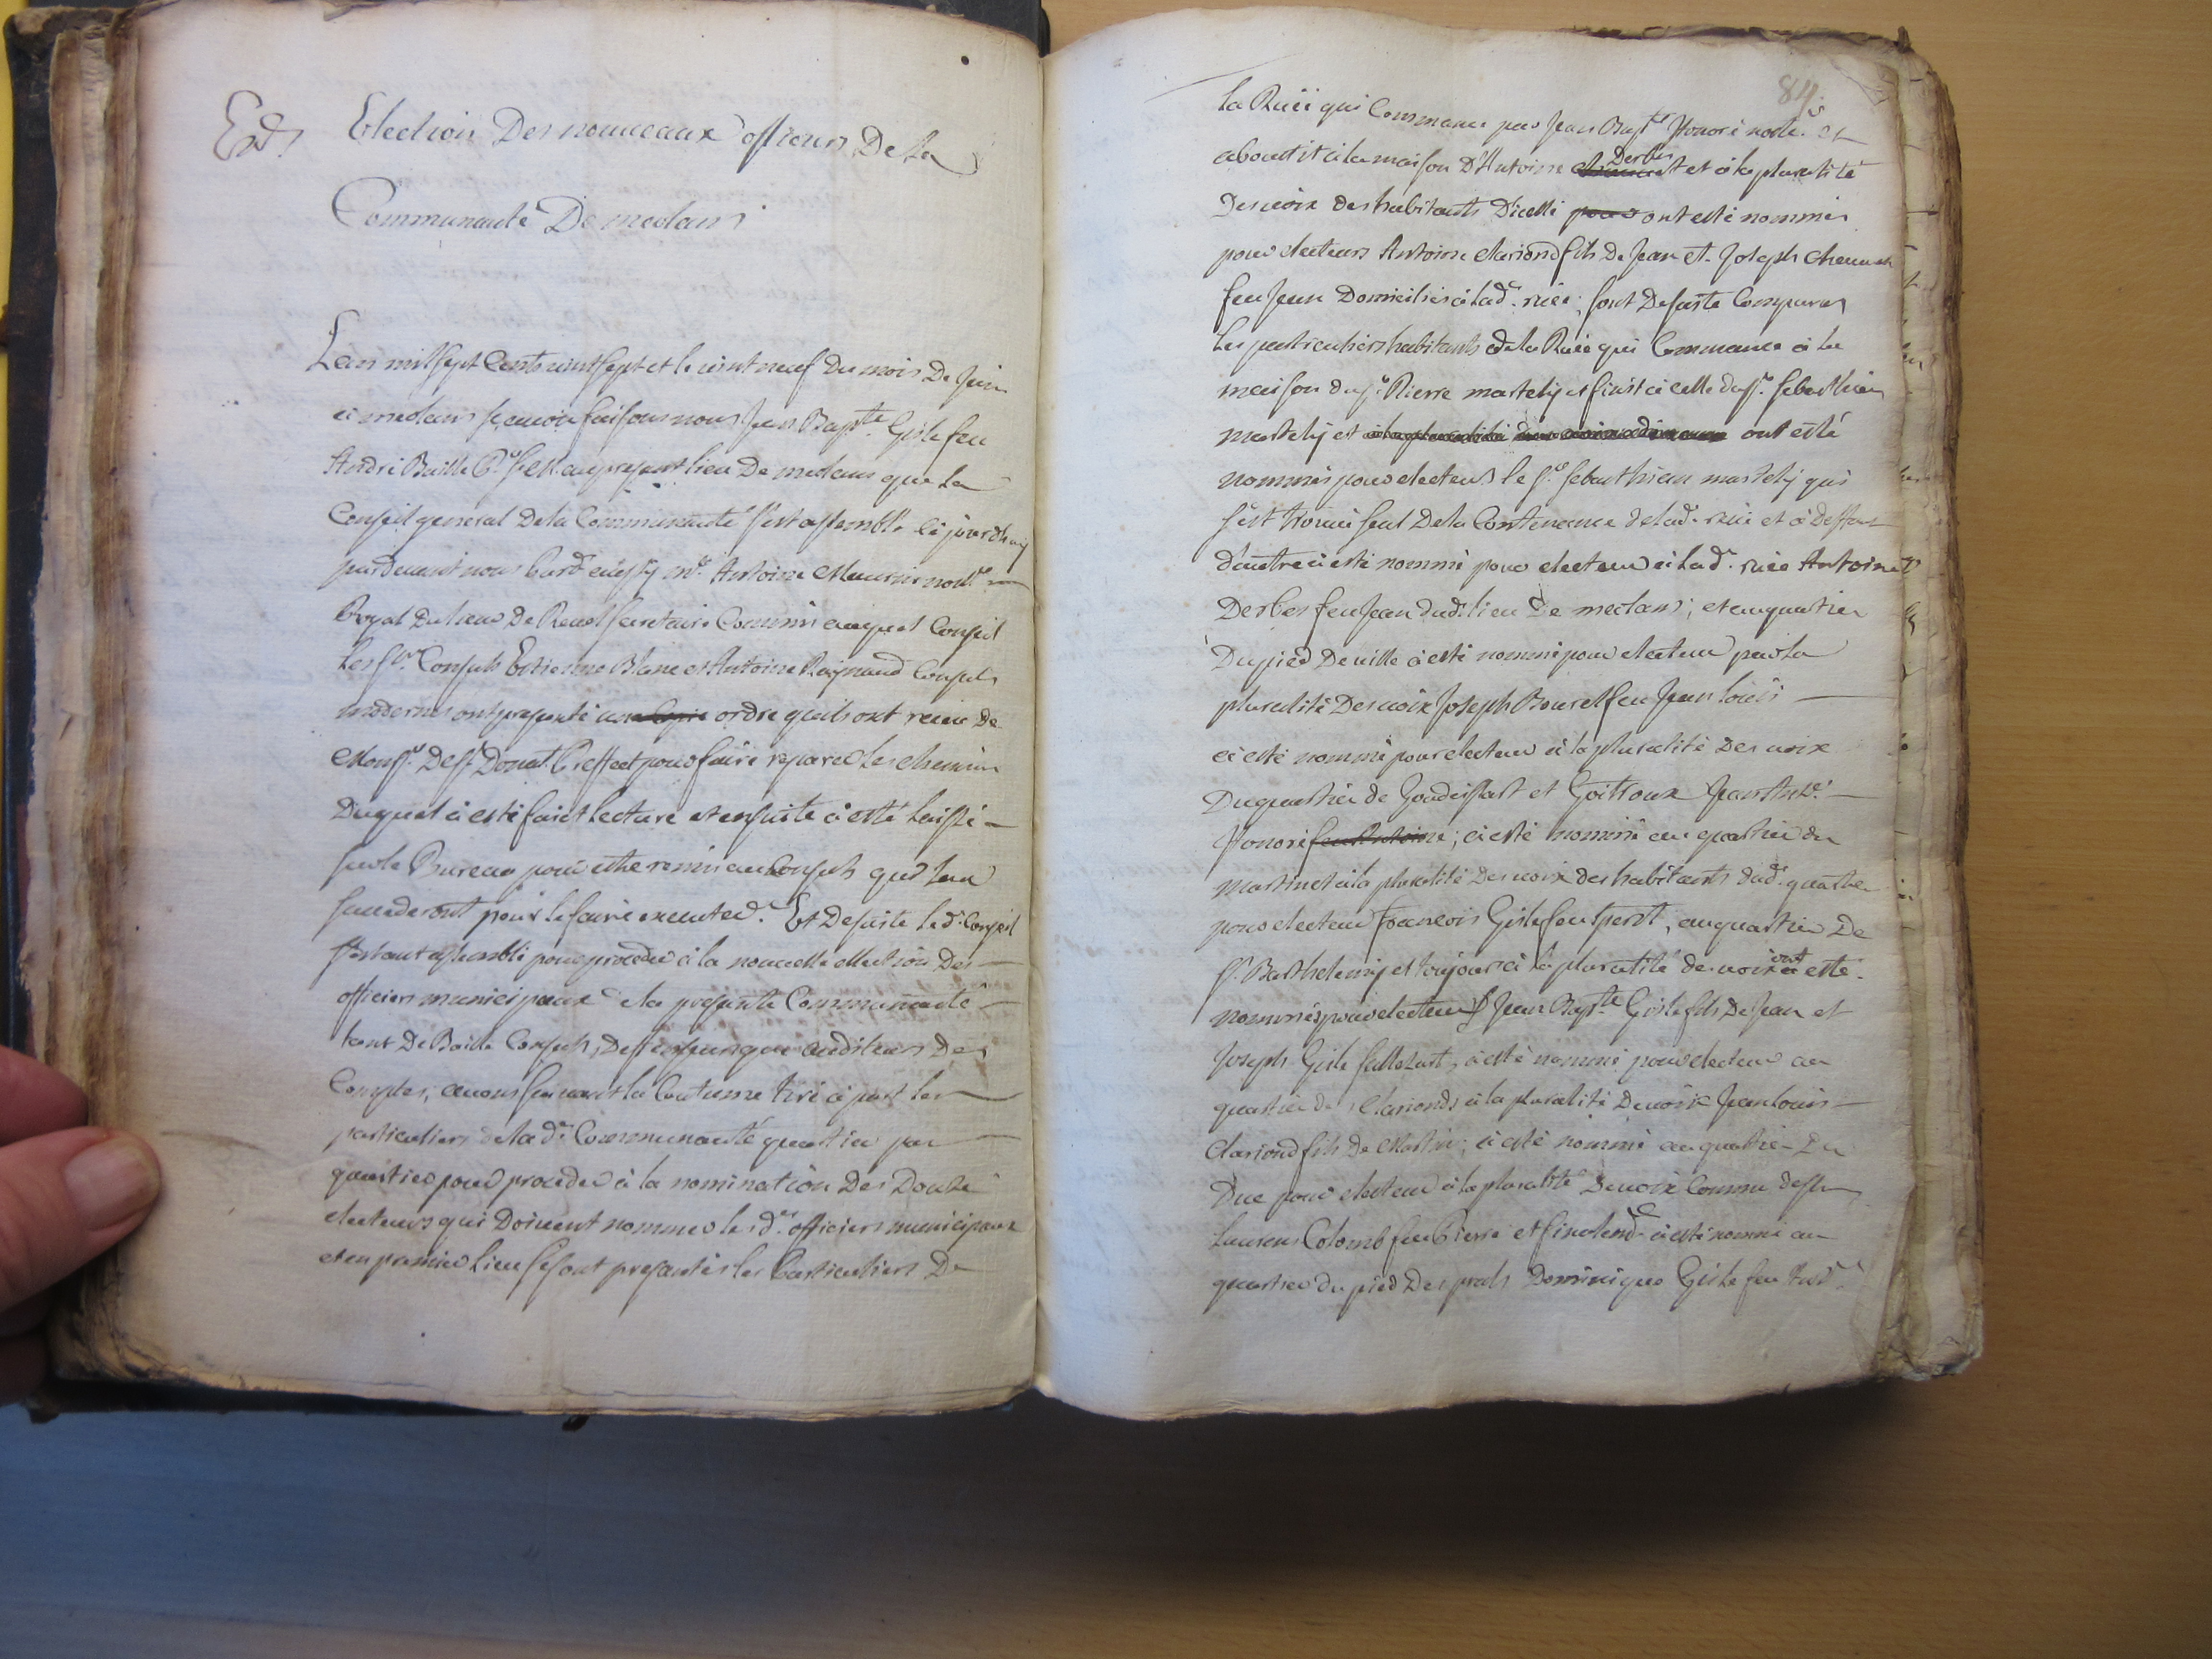 Exd.
Election Des nouveaux officiers De la
Communauté De meolans
Lan mil sept Cents vint sept et le vint neuf Du mois De Juin
à meolans sçavoir faisons nous Jean Bapte. Gisle feu
André Baille quau present lieu De meolans que le
Conseil general Dela Communauté s'est assemblé ce jourdhuy
pardevant nous Me. Antoine Meunier nore.
Royal Du lieu De Revel secretaire Commis auquel Conseil
les srs. Consuls Estienne Blanc et Antoine Raynaud Consuls
modernes ont presenté une Copie ordre quils ont receu De
Monsr. De st. Donat Preffect pour faire reparer les chemins
Duquel a esté faict lecture et ensuite a esté laissé
sur le Bureau pour estre remis au Consuls qui leur
succederont pour le faire executer. Et De suite led. Conseil
s'estant assemblé pour proceder à la nouvelle election Des
officiers municipaux de la presente Communauté
tant De Baille Consuls, que auditeurs Des
Comptes, avons suivant la Coutume tiré à part les
particuliers de lad. Communauté quartier par
quartier pour proceder à la nomination Des Douze
electeurs qui Doivent nommer lesd. officiers municipaux
et en premier lieu se sont presantés les Particuliers De
84.
la Ruëe qui Commance par Jean Bapte. Honoré nore. et
aboutit à la maison D'Antoine Derbes et à la pluralité
Des voix des habitants D'icelle pour ont esté nommés
pour electeurs Antoine Clariond fils De Jean et Joseph
feu Jean Domiciliés à lad. ruëe; sont De suite Comparus
les particuliers habitants de la Ruëe qui Commance à la
maison du sr. Pierre martely et finit à celle du sr. sebasthien
martely et à la pluralité ont esté
nommés pour electeurs le sr. sebasthien martely qui
s'est trouvé seul De la Contenance de lad. ruëe et à Deffaut
d'autre a esté nommé pour electeur à lad. ruëe Antoine
Derbes feu Jean dud. lieu De meolans; et au quartier
Du pied De ville a esté nommé pour electeur par la
pluralité Des voix Joseph Bourel feu Jean louis
a esté nommé pour electeur à la pluralité Des voix
Du quartier de Goudeissart et Goitroux Jean Ante.
Honoré feu Antoine; a esté nommé au quartier du
martinet à la pluralité Des voix des habitants dud. quartier
pour electeur François Gisle feu sperit, au quartier De
st. Barthelemy et toujours à la pluralité de voix ont esté
nommés pour electeurs Jean Bapte. Gisle fils De Jean et
Joseph Gisle, a esté nommé pour electeur au
quartier des Clarionds à la pluralité De voix Jean louis
Clariond fils De Martin; a esté nommé au quartier Du
Duc pour electeur à la pluralité De voix Comme dessus
Laurens Colomb feu Pierre et finalemt. a esté nommé au
quartier du pied Des prats Dominique Gisle feu And.